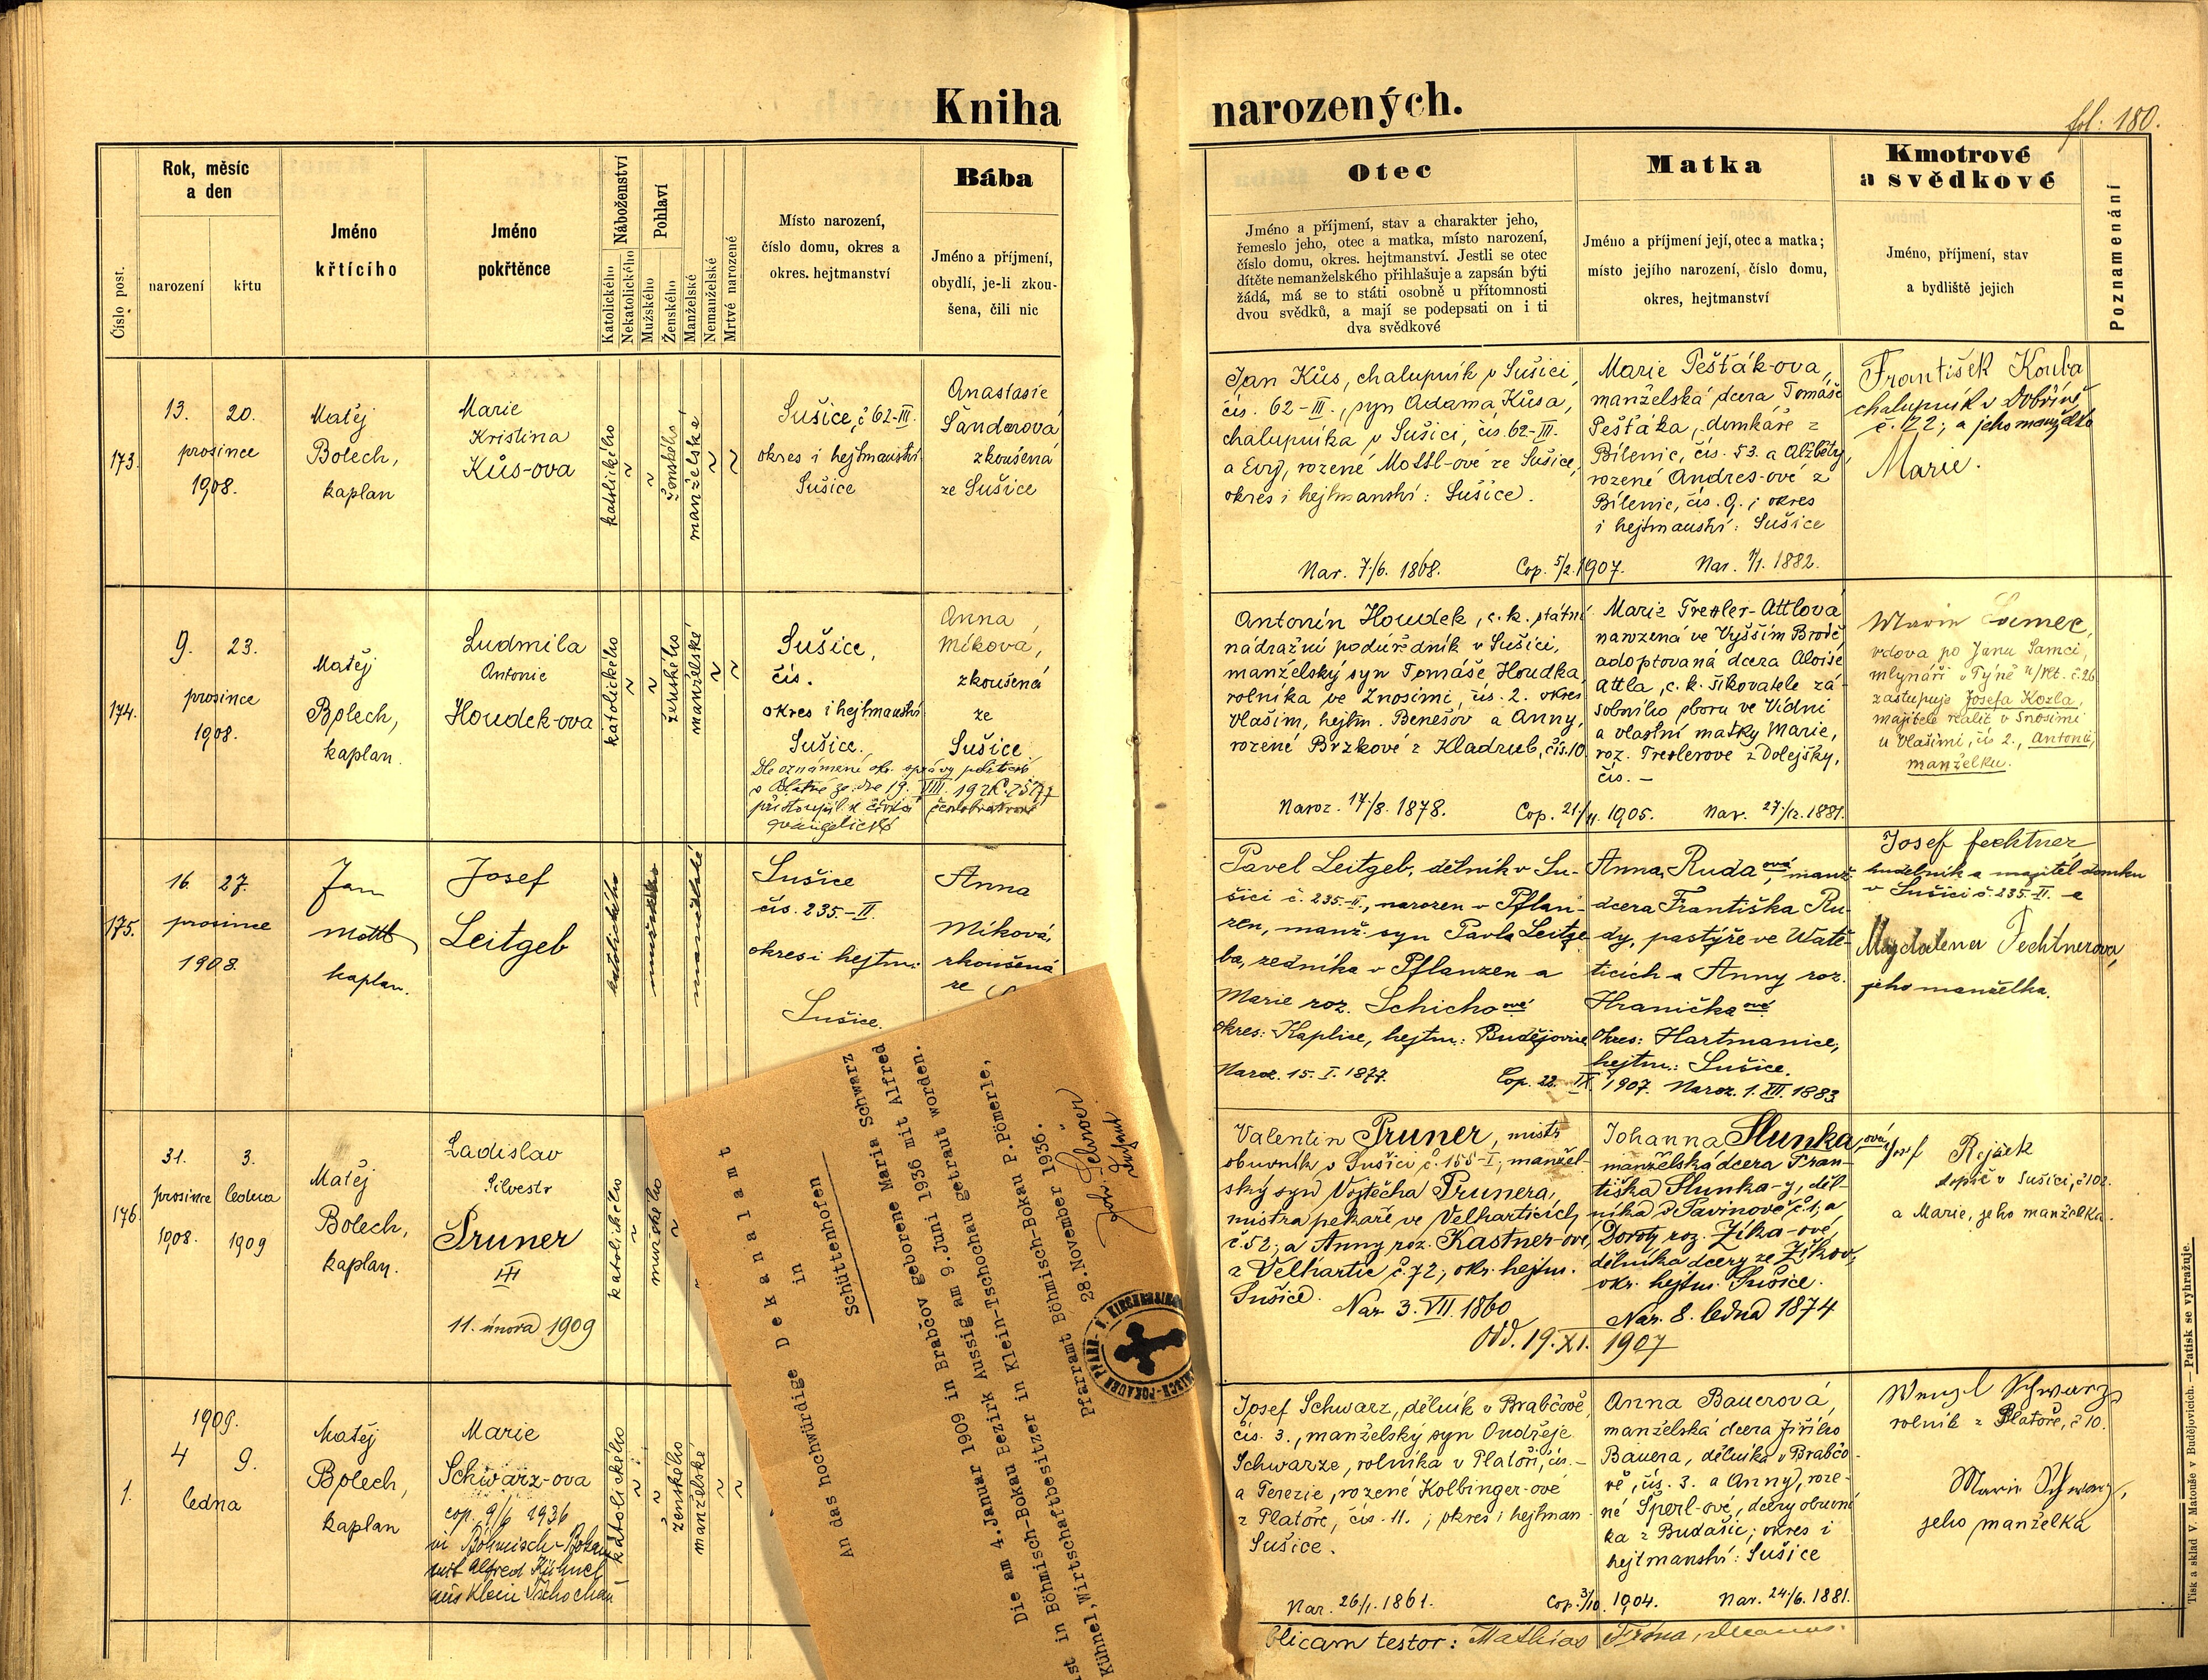 Kniha narozených.
fol: 180.
Číslo post.
Rok, měsíc
a den
narození
křtu
Jméno
křtícího
Jméno
pokřtěnce
Náboženství
Katolického
Nekatolického
Pohlaví
Mužského
Ženského
Manželské
Nemanželské
Mrtvé narozené
Místo narození,
číslo domu, okres a
okres. hejtmanství
Bába
Jméno a příjmení,
obydlí, je-li zkou-
šena, čili nic
Otec
Jméno a příjmení, stav a charakter jeho,
řemeslo jeho, otec a matka, místo narození,
číslo domu, okres. hejtmanství. Jestli se otec
dítěte nemanželského přihlašuje a zapsán býti
žádá, má se to státi osobně u přítomnosti
dvou svědků, a mají se podepsati on i ti
dva svědkové
Matka
Jméno a příjmení její, otec a matka;
místo jejího narození, číslo domu,
okres, hejtmanství
Kmotrové
a svědkové
Jméno, příjmení, stav
a bydliště jejich
Poznamenání
173.
13. 20.
prosince
1908.
Matěj
Bolech,
kaplan
Marie
Kristina
Kůs-ova
katolického
ženského
manželské
Sušice, č 62-III.
okres i hejtmanství
Sušice
Anastasie
Šanderová
zkoušená
ze Sušice
Jan Kůs, chalupník v Sušici,
čís. 62-III., syn Adama Kůsa,
chalupníka v Sušici, čís. 62-III.
a Evy, rozené Mottl-ové ze Sušice,
okres i hejtmanství: Sušice.
Nar. 7/6. 1868.
Cop. 5/2. 1907.
Marie Pešták-ova,
manželská dcera Tomáše
Pešťáka, domkáře z
Bílenic, čís. 53. a Alžběty,
rozené Andres-ové z
Bílenic, čís. 9. i okres
i hejtmanství: Sušice
Nar. 1/1. 1882.
František Kouba
chalupník v Dobříně,
č. 122; a jeho manželka
Marie.
174.
9. 23.
prosince
1908.
Matěj
Bolech,
kaplan.
Ludmila
Antonie
Houdek-ova
katolického
ženského
manželské
Sušice,
čís.
okres i hejtmanství
Sušice.
Anna
Míková,
zkoušená
ze
Sušice
Dle oznámení okr. správy politické
přistoupil k církvi českobratrské
evangelické
Antonín Houdek, c. k. státní
nádražní podúředník v Sušici,
manželský syn Tomáše Houdka,
rolníka ve Znosimi, čís. 2. okres
Vlašim, hejtm. Benešov a Anny,
rozené Brzkové z Kladrub, čís. 10.
Naroz. 17/8. 1878.
Cop. 21/11. 1905.
Marie Trexler-Attlová
narozená ve Vyšším Brodě,
adoptovaná dcera Aloise
Attla, c. k. šikovatele zá-
sobního sboru ve Vídni
a vlastní matky Marie,
roz. Trexlerove z Dolejšky,
čís. –
Nar. 27/12. 1881.
vdova po Janu Samci,
mlynáři v Týně n/Vlt. č. 26
zastupuje Josefa Kozla,
majitele realit v Znosimi
u Vlašimi, čís 2., Antonii,
manželku.
175.
16. 27.
prosince
1908.
Jan
Mottl
kaplan.
Josef
Leitgeb
katolického
mužského
manželské
Sušice
čís. 235.-II.
okres i hejtm.:
Sušice.
Anna
Míková,
zkoušená
ze
Pavel Leitgeb, dělník v Su-
šici č. 235.-II., narozen v Pflan-
zen, manž. syn Pavla Leitge-
ba, zedníka v Pflanzen a
Marie roz. Schicho ové
okres: Kaplice, hejtm.: Budějovice
Naroz. 15. I. 1877.
Cop. 22. IX. 1907.
Anna Ruda ová, manž.
dcera Františka Ru-
dy, pastýře ve Watě-
ticích a Anny roz.
Hranička ové
okres: Hartmanice,
hejtm.: Sušice.
Naroz. 1. XII. 1883
Josef Fechtner
hudebník a majitel domku
v Sušici č. 235.-II. a
Magdalena Fechtnerova,
jeho manželka.
176.
31. 3.
prosince ledna
1908. 1909
Matěj
Bolech,
kaplan.
Ladislav
Silvestr
Pruner
III
11. února 1909
katolického
mužského
Valentin Pruner, mistr
obuvník v Sušici č. 155-I., manžel-
ský syn Vojtěcha Prunera,
mistra pekaře ve Velharticích,
č. 52; a Anny roz. Kastner-ové,
z Velhartic, č. 72; okr. hejtm.
Sušice.
Nar. 3. VII. 1860
Odd. 19. XI. 1907
Johanna Slunka, ová
manželská dcera Fran-
tiška Slunka-y, děl-
níka v Pavinově č. 1, a
Doroty roz. Zíka-ové,
dělníka dcery ze Žíkov,
okr. hejtm. Sušice.
Nar. 8. ledna 1874
Rejžek
topič v Sušici, č 102.
a Marie, jeho manželka.
1.
1909.
4 9.
ledna
Matěj
Bolech,
kaplan
Marie
Schwarz-ova
cop. 9/6 1936
in Böhmisch-Bokau
mit Alfred Kühnel
aus Klein Tschochau
katolického
ženského
manželské
Josef Schwarz, dělník v Brabčově,
čís. 3., manželský syn Ondřeje
Schwarze, rolníka v Platoři, čís. –
a Terezie, rozené Kolbinger-ové
z Platoře, čís. 11.; okres i hejtman-
Sušice.
Nar. 26/1. 1861.
Cop. 3/10. 1904.
Anna Bauerová,
manželská dcera Jiřího
Bauera, dělníka v Brabčo-
vě, čís. 3. a Anny, roze-
né Šperl-ové, dcery obuvní-
ka z Budašic; okres i
hejtmanství: Sušice
Nar. 24/6. 1881.
Wenzl Schwarz
rolník z Platoře, č 10.
Marie Schwarz,
jeho manželka
blicam testor: Mathias
An das hochwürdige Dekanalamt
in
Schüttenhofen
Die am 4.Januar 1909 in Brabčov geborene Maria Schwarz
ist in Böhmisch-Bokau Bezirk Aussig am 9.Juni 1936 mit Alfred
Kühnel,Wirtschaftbesitzer in Klein-Tschochau getraut worden.
Pfarramt Böhmisch-Bokau P.Pömmerle,
28.November 1936.
Tisk a sklad V. Matouše v Budějovicích. — Patisk se vyhražuje.